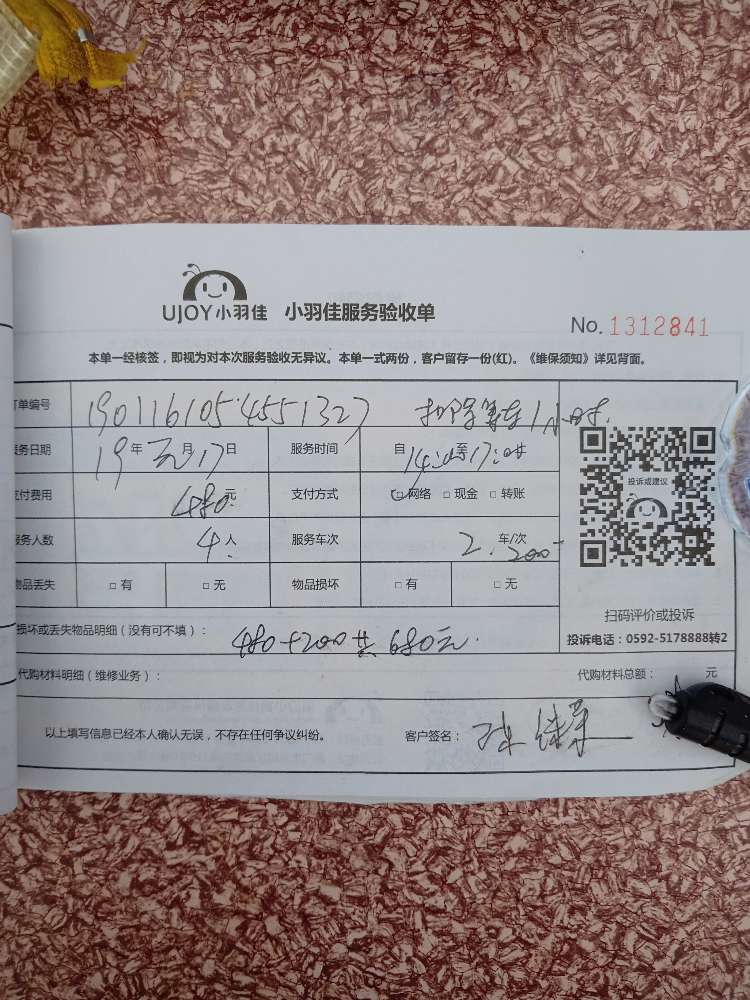 UJOY小羽佳 小羽佳服务验收单
No. 1312841
本单一经核签，即视为对本次服务验收无异议。本单一式两份，客户留存一份(红)。《维保须知》详见背面。
订单编号 1901161054551327 1小时.
服务日期 19年元月17日 服务时间 自14:至17:时
支付费用 480元 支付方式 ☑网络 □现金 □转账
投诉或建议
服务人数 4人 服务车次 2.车/次 200
物品丢失 □有 □无 物品损坏 □有 □无
扫码评价或投诉
损坏或丢失物品明细（没有可不填）： 480+200共680元. 投诉电话：0592-5178888转2
代购材料明细（维修业务）： 代购材料总额： 元
以上填写信息已经本人确认无误，不存在任何争议纠纷。 客户签名：